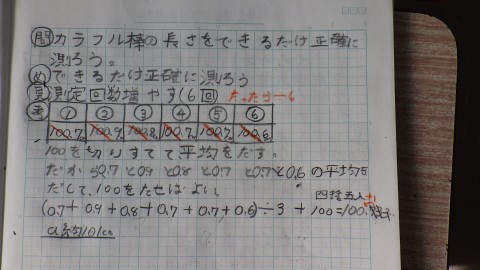 問 カラフル棒の長さをできるだけ正確に
測ろう。
め できるだけ正確に測ろう
実 測定回数増やす(6回
たったら÷6
考 ① ② ③ ④ ⑤ ⑥
100.7 100.9 100.8 100.7 100.7 100.6
100を切りすてて平均をだす。
だから0.7と0.9と0.8と0.7 と0.7と0.6の平均を
だして、100をたせばよい。
四捨五入
(0.7+0.9+0.8+0.7+0.7+0.6)÷3+100=100.